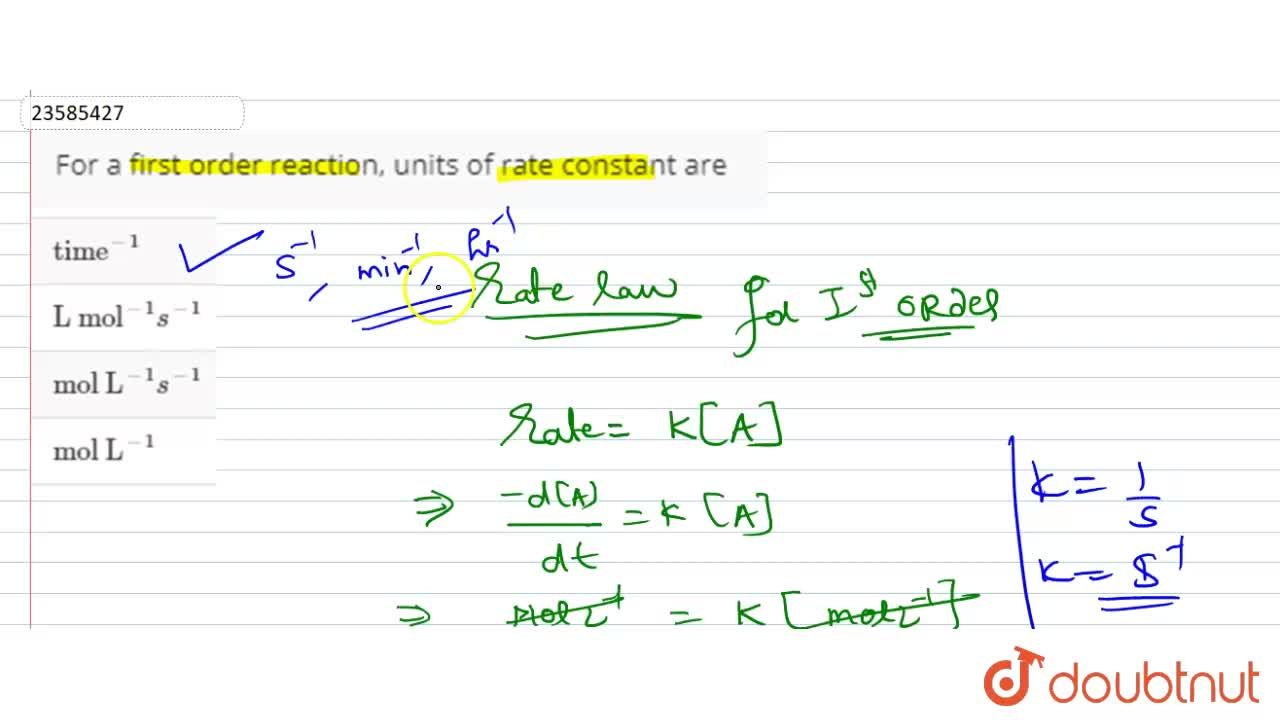 23585427
For a first order reaction, units of rate constant are
time⁻¹
s⁻¹, min⁻¹, hr⁻¹
Rate law for Iˢᵗ ORDER
L mol⁻¹s⁻¹
mol L⁻¹s⁻¹
mol L⁻¹
Rate = K[A]
⇒ -d[A]/dt = K [A]
⇒ Mol L⁻¹ = K [mol L⁻¹]
K = 1/s
K = S⁻¹
doubtnut